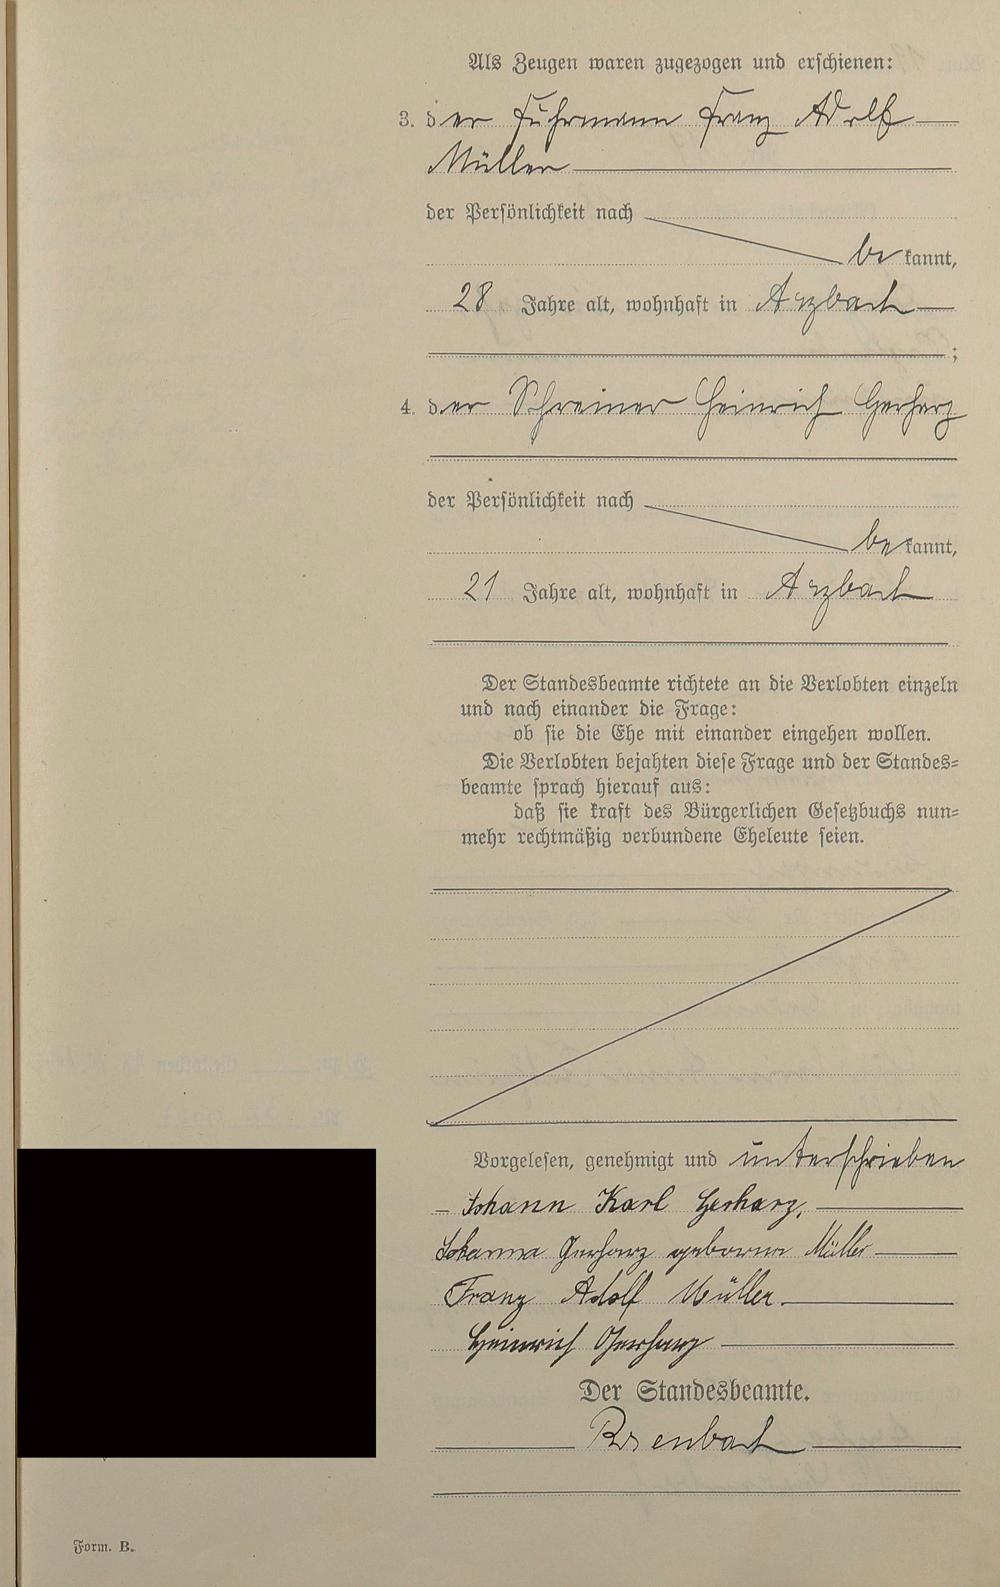 Als Zeugen waren zugezogen und erschienen:
3. der Fuhrmann Franz Adolf
Müller
der Persönlichkeit nach
bekannt,
28 Jahre alt, wohnhaft in Arzbach
;
4. der Schreiner Heinrich Gerharz
der Persönlichkeit nach
bekannt,
21 Jahre alt, wohnhaft in Arzbach
Der Standesbeamte richtete an die Verlobten einzeln
und nach einander die Frage:
ob sie die Ehe mit einander eingehen wollen.
Die Verlobten bejahten diese Frage und der Standes=
beamte sprach hierauf aus:
daß sie kraft des Bürgerlichen Gesetzbuchs nun=
mehr rechtmäßig verbundene Eheleute seien.
Vorgelesen, genehmigt und unterschrieben
Johann Karl Gerharz.
Johanna Gerharz geborene Müller
Franz Adolf Müller.
Heinrich Gerharz
Der Standesbeamte.
Form. B.